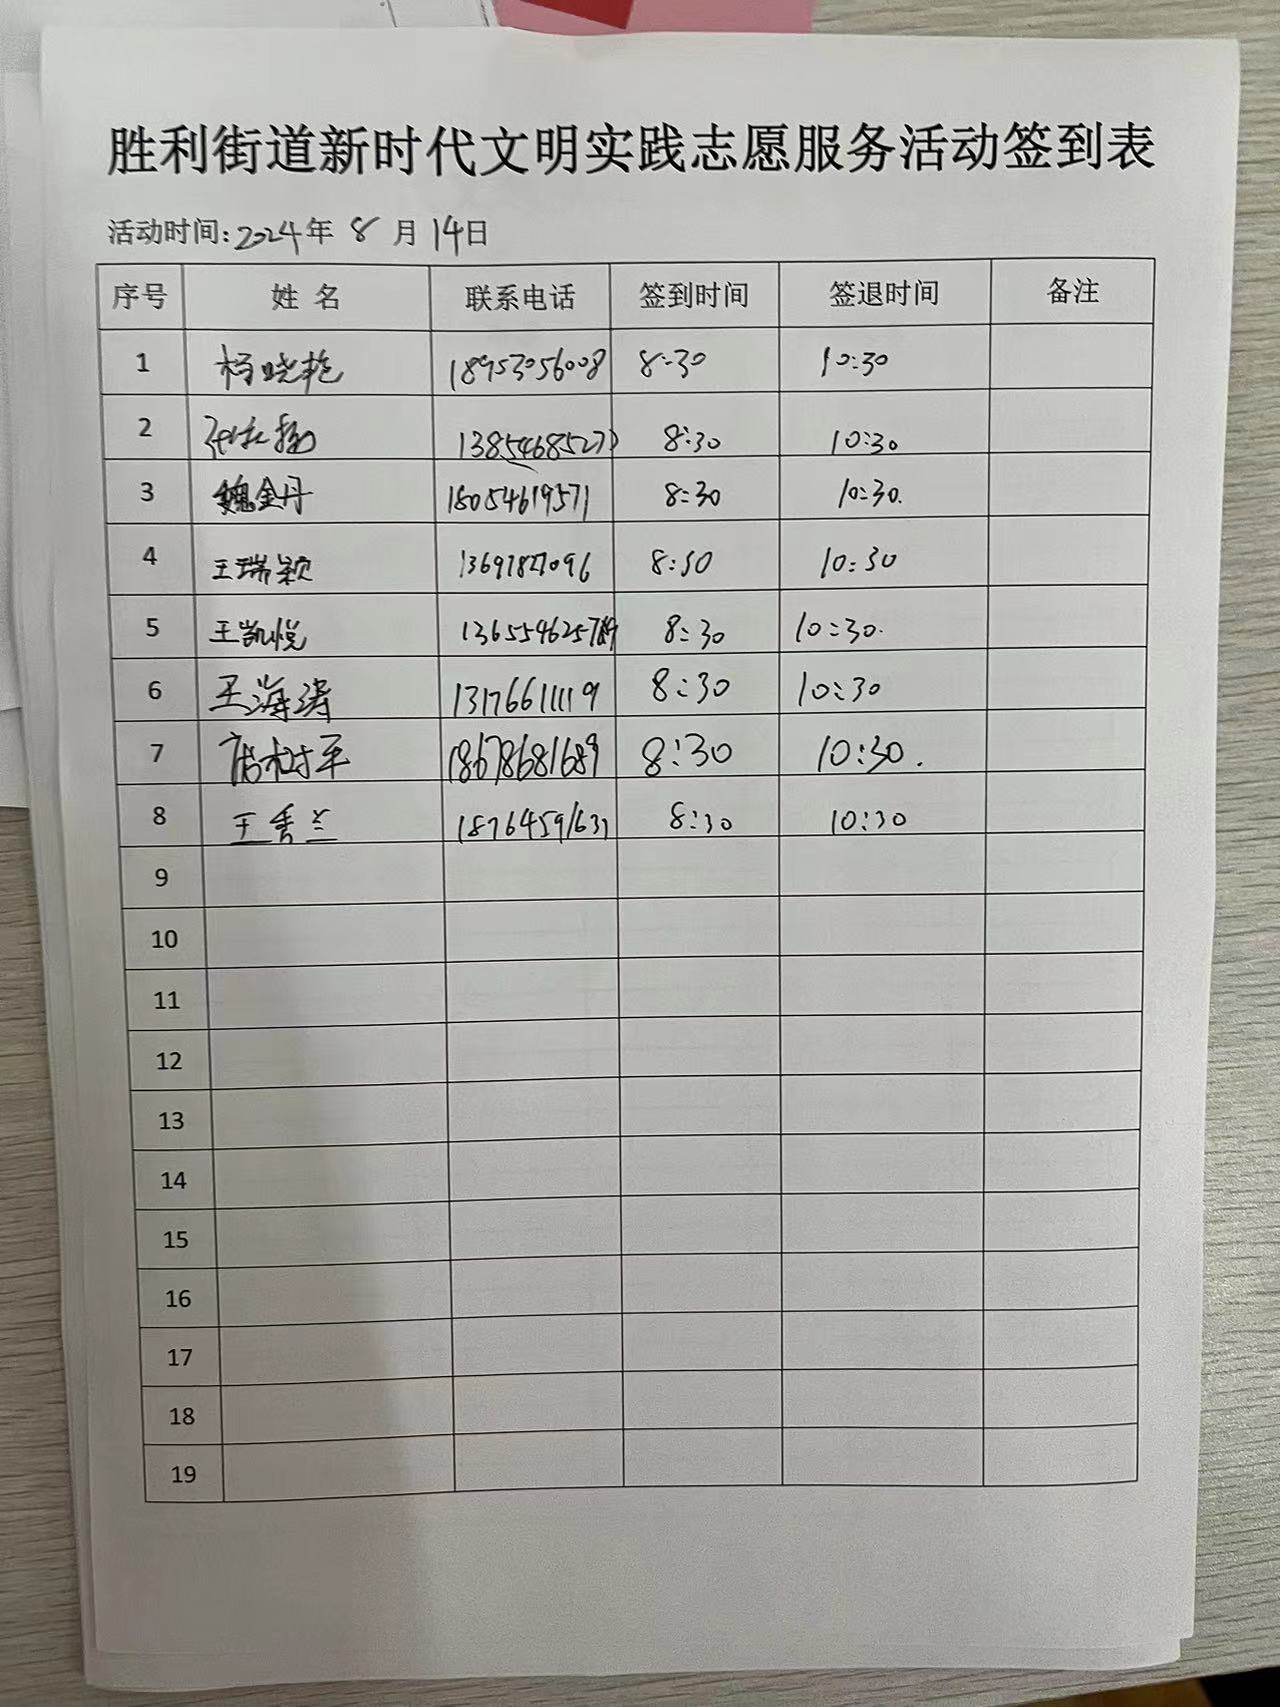 胜利街道新时代文明实践志愿服务活动签到表
活动时间:2024年 8 月 14日
序号 姓 名 联系电话 签到时间 签退时间 备注
1 杨晓艳 18953056008 8:30 10:30
2 8:30 10:30
3 魏金丹 18054619571 8:30 10:30.
4 王瑞颖 8:30 10:30
5 王凯悦 8:30 10:30.
6 王海涛 13176611119 8:30 10:30
7 唐树平 18678681689 8:30 10:30.
8 王秀兰 18764591637 8:30 10:30
9
10
11
12
13
14
15
16
17
18
19